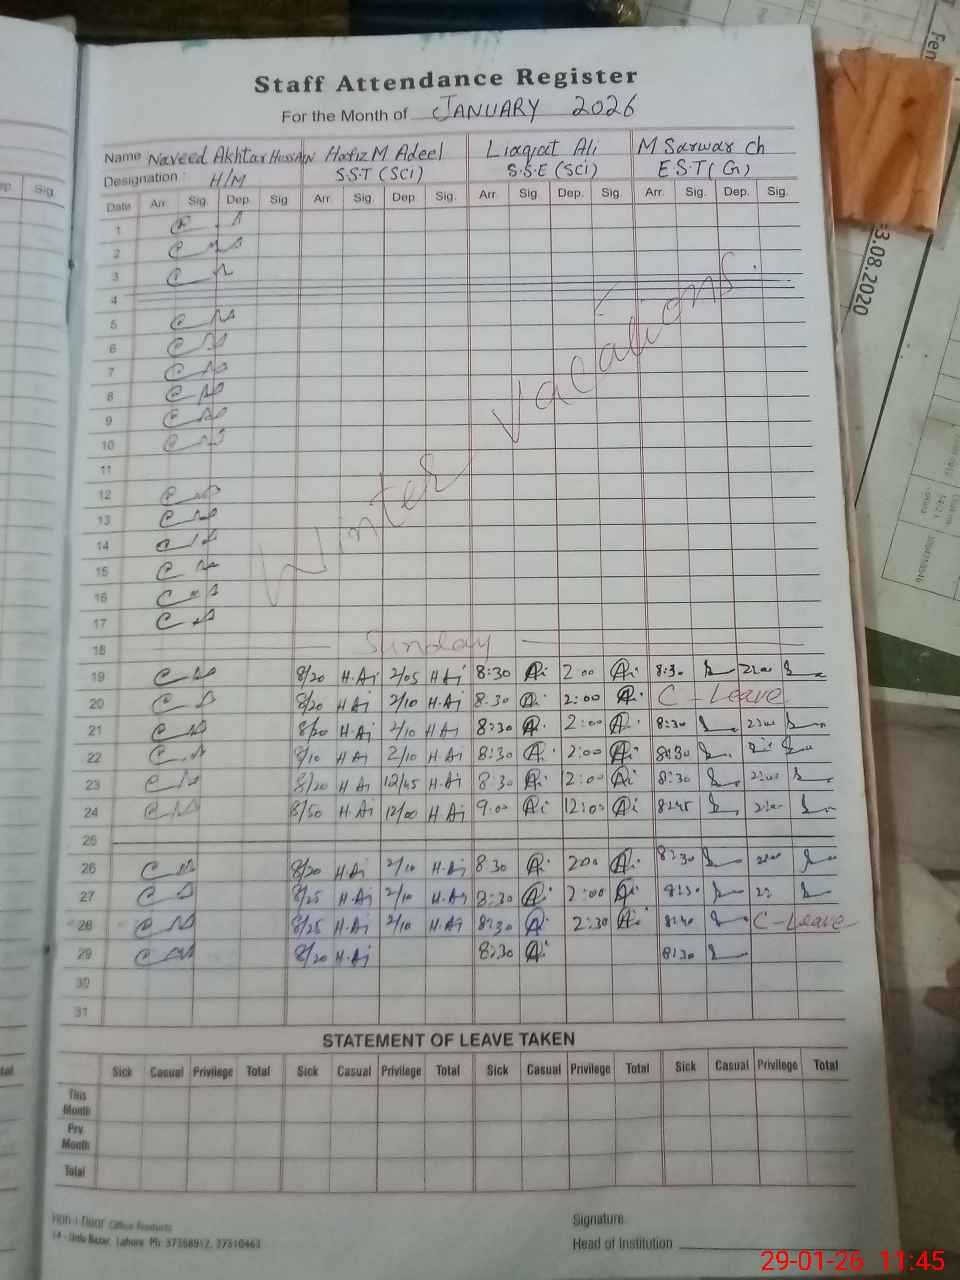 Staff Attendance Register
For the Month of JANUARY 2026
Name Naveed Akhtar Hussain Hafiz M Adeel Liaqat Ali M Sarwar ch
Designation : H/M S.S.T (SCI) S.S.E (SCI) E.S.T (G)
Date Arr. Sig. Dep. Sig Arr. Sig. Dep. Sig. Arr. Sig. Dep. Sig. Arr. Sig. Dep. Sig.
1
2
3
4
5
6
7
8
9
10
11
12
13
14
15
16
17
Winter Vacations
18 Sunday
19 8/20 H.Ai 2/05 H Ai 8:30 Ai 2:00 Ai 8:30 2:00
20 8/20 H Ai 2/10 H Ai 8.30 Ai 2:00 A. C-Leave
21 8/20 H.Ai 2/10 H Ai 8:30 A. 2:00 A. 8:30 2:00
22 8/10 H Ai 2/10 H Ai 8:30 A. 2:00 Ai 8:30
23 8/20 H Ai 12/45 H.Ai 8.30 Ai 2:00 Ai 8:30 2:00
24 8/50 H Ai 12/00 H.Ai 9.00 Ai 12:00 Ai 8:45 2:00
25
26 8/20 H.Ai 2/10 H.Ai 8.30 A. 200 A. 8:30 2:00
27 8/25 H.Ai 2/10 H.Ai 8:30 A. 2:00 Ai 8:30
28 8/25 H.Ai 2/10 H.Ai 8:30 A. 2:30 Ai 8:40 C-Leave
29 8/20 H.Ai 8:30 A. 8:30
30
31
STATEMENT OF LEAVE TAKEN
Sick Casual Privilege Total Sick Casual Privilege Total Sick Casual Privilege Total Sick Casual Privilege Total
This Month
Prv Month
Total
Office Products
14 - Urdu Bazar, Lahore Ph: 37358912, 37310463
Signature.
Head of Institution
3.08.2020
29-01-26 11:45